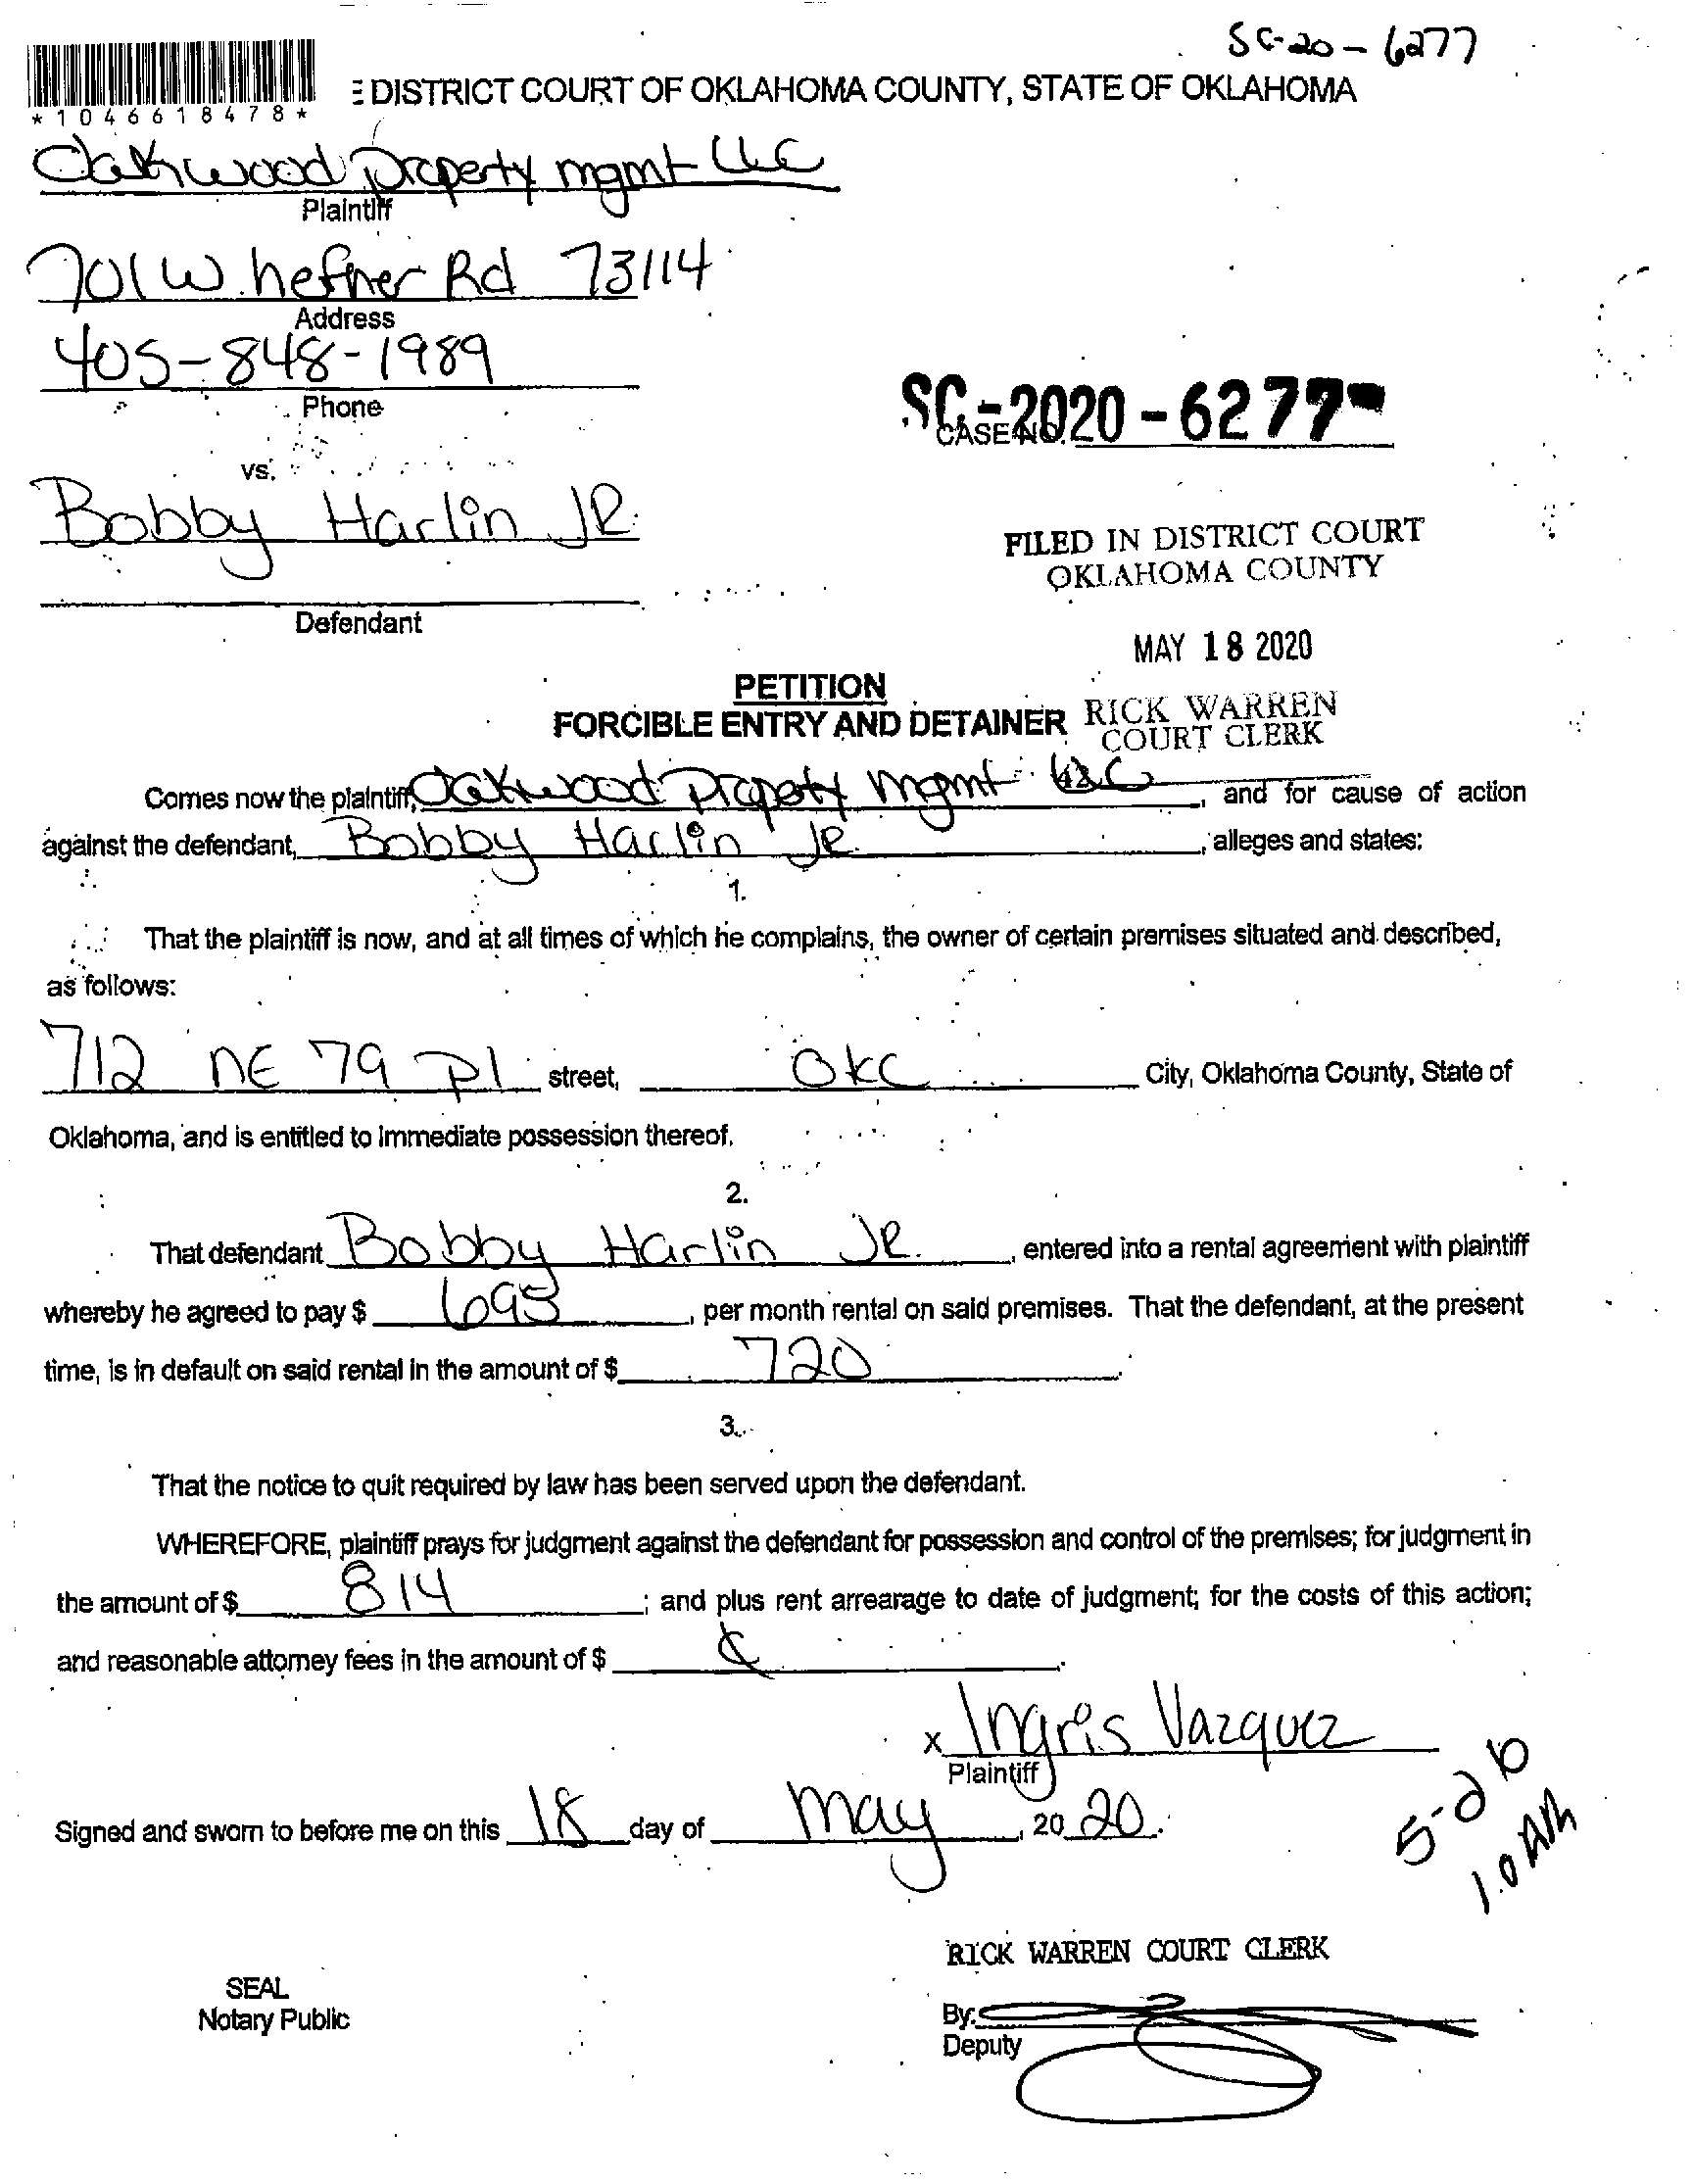 SC-20-6277
*1046618478*
E DISTRICT COURT OF OKLAHOMA COUNTY, STATE OF OKLAHOMA
Oakwood property mgmt LLC
Plaintiff
701 W. hefner Rd 73114
Address
405-848-1989
Phone
SC-2020-6277
CASE NO.
vs.
Bobby Harlin JR.
Defendant
FILED IN DISTRICT COURT
OKLAHOMA COUNTY
MAY 18 2020
RICK WARREN
COURT CLERK
PETITION
FORCIBLE ENTRY AND DETAINER
Comes now the plaintiff, Oakwood Propety mgmt LLC, and for cause of action
against the defendant, Bobby Harlin JR., alleges and states:
1.
That the plaintiff is now, and at all times of which he complains, the owner of certain premises situated and described,
as follows:
712 NE 79 Pl street, OKC City, Oklahoma County, State of
Oklahoma, and is entitled to immediate possession thereof.
2.
That defendant Bobby Harlin JR., entered into a rental agreement with plaintiff
whereby he agreed to pay $ 695, per month rental on said premises. That the defendant, at the present
time, is in default on said rental in the amount of $ 720.
3.
That the notice to quit required by law has been served upon the defendant.
WHEREFORE, plaintiff prays for judgment against the defendant for possession and control of the premises; for judgment in
the amount of $ 814; and plus rent arrearage to date of judgment; for the costs of this action;
and reasonable attorney fees in the amount of $.
x Ingris Vazquez
Plaintiff
Signed and sworn to before me on this 18 day of may, 20 20.
5-26
10 AM
RICK WARREN COURT CLERK
SEAL
Notary Public
By:
Deputy